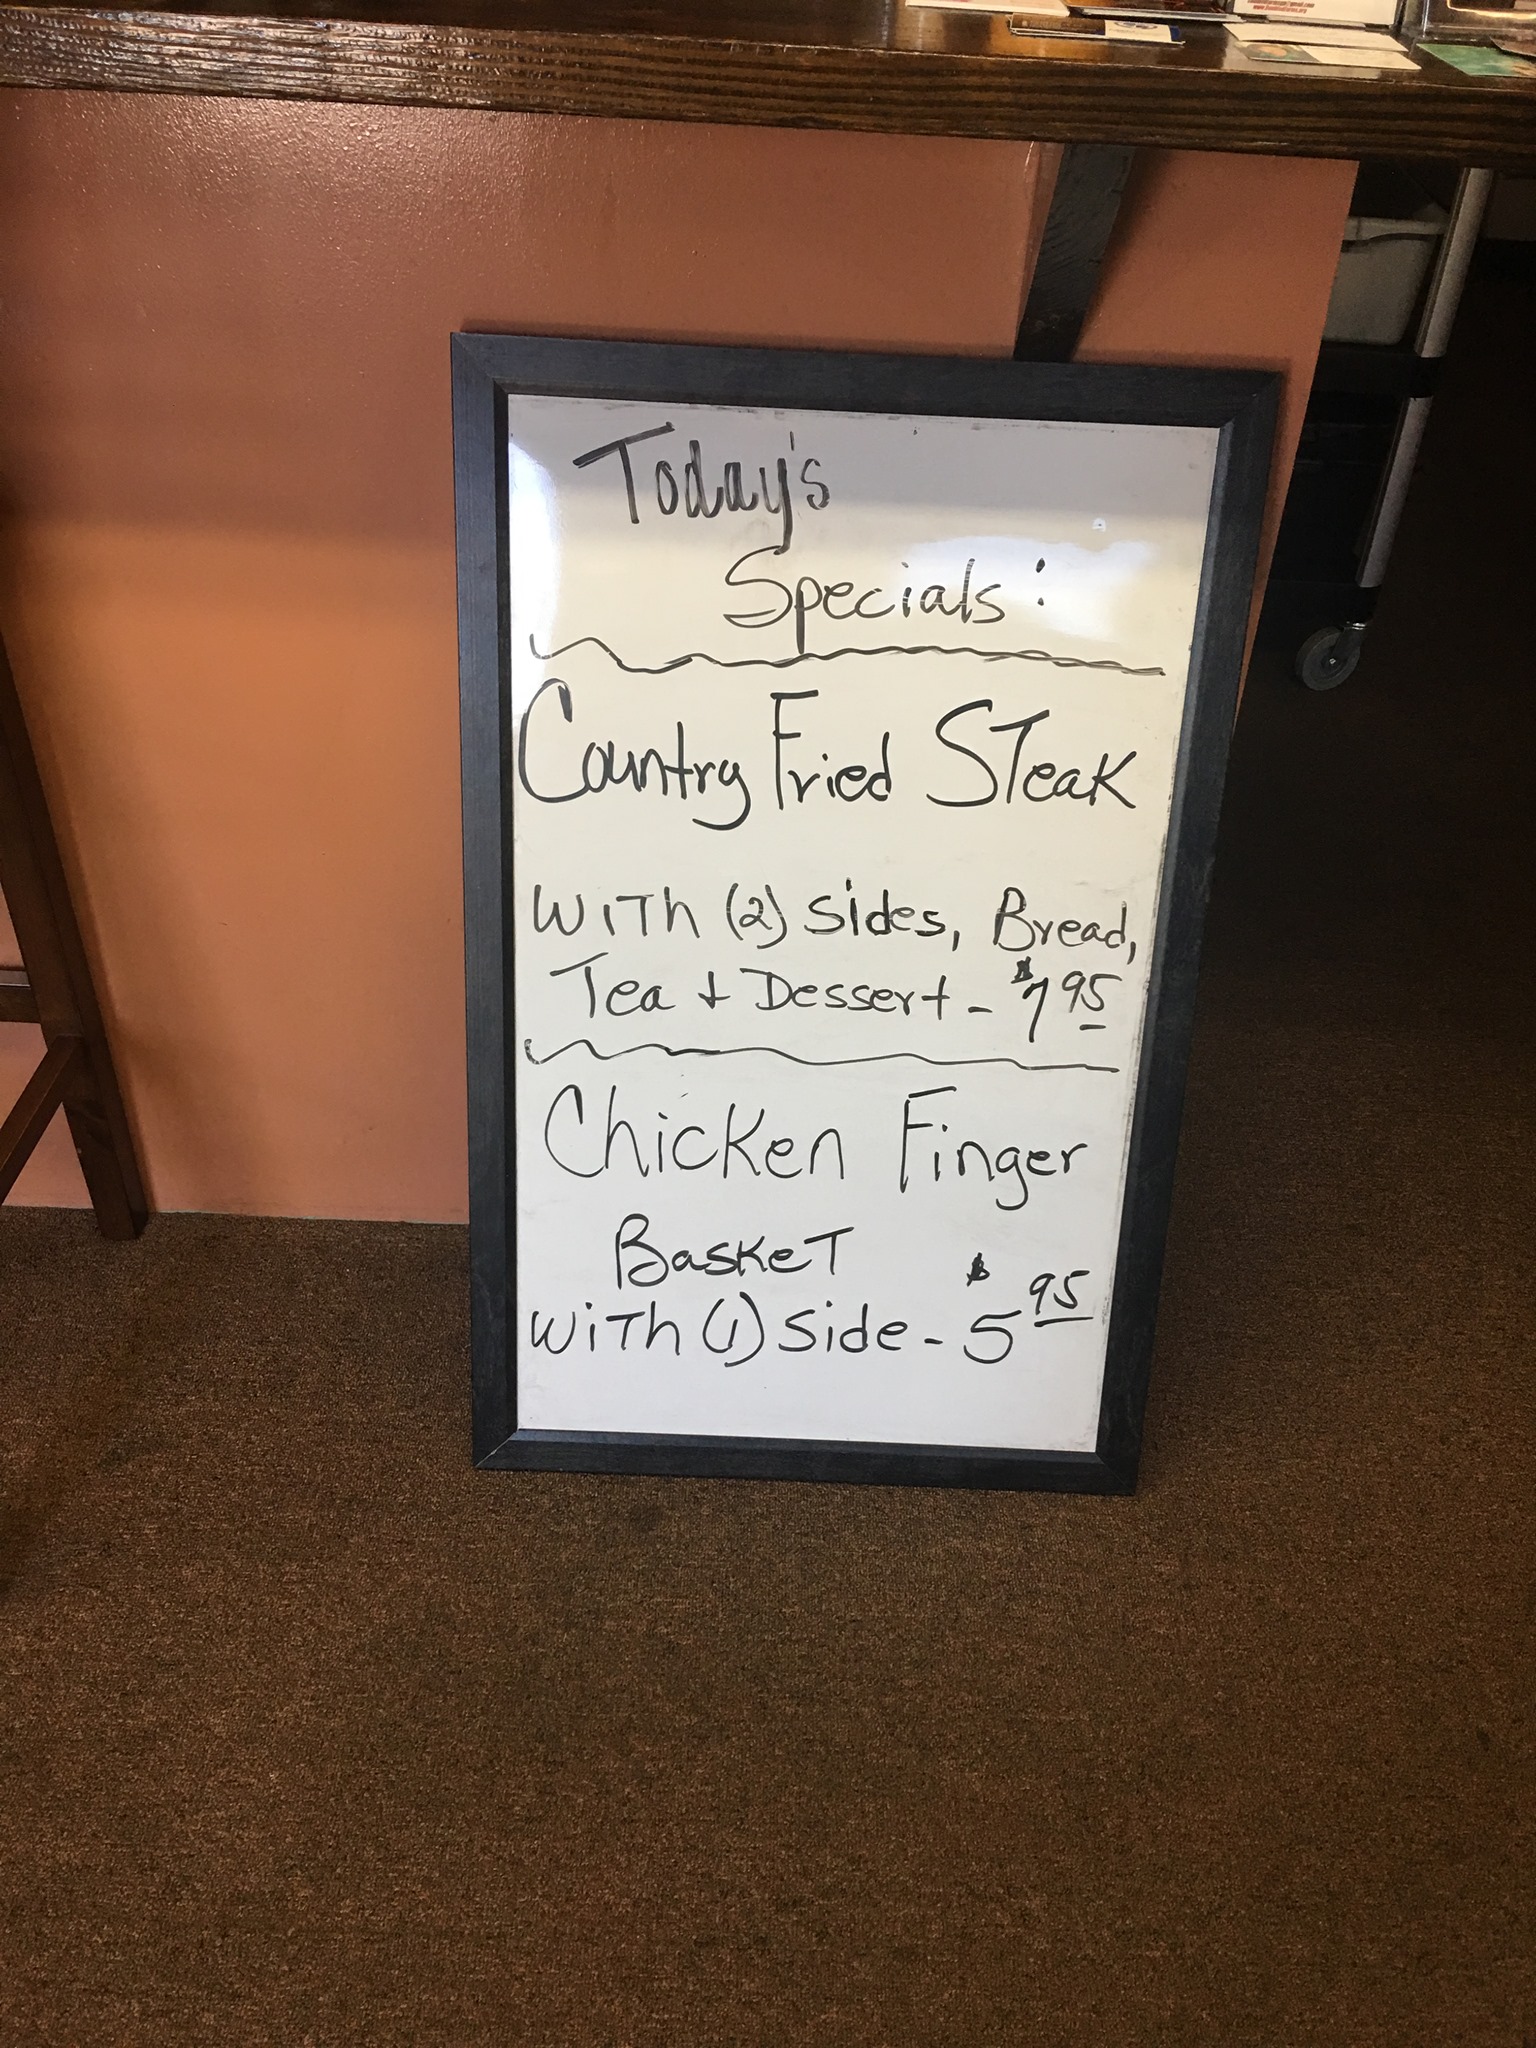 Today's
Specials:
Country Fried STeak
WiTh (2) sides, Bread,
Tea + Dessert - $7 95
Chicken Finger
BaskeT
WiTh (1) Side - $5 95